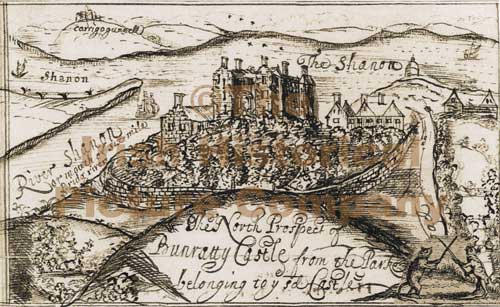 Carrigogunnell
Shanon
The Shanon
River Shanon
The North Prospect of
Bunratty Castle from The Park
belonging to ye sd Castle
© The
Irish Historical
Picture Company